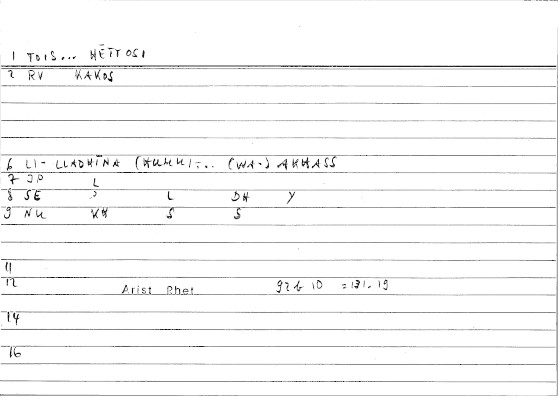 1 TOIS... HĒTTOSI
2 RV KAKOS
6 LI-LLADHĪNA (HUMU)... (WA-) AKHASS
7 JP L
8 SE L DH Y
9 NU KH S S
11
12 Arist Rhet 92b 10 =131.19
14
16